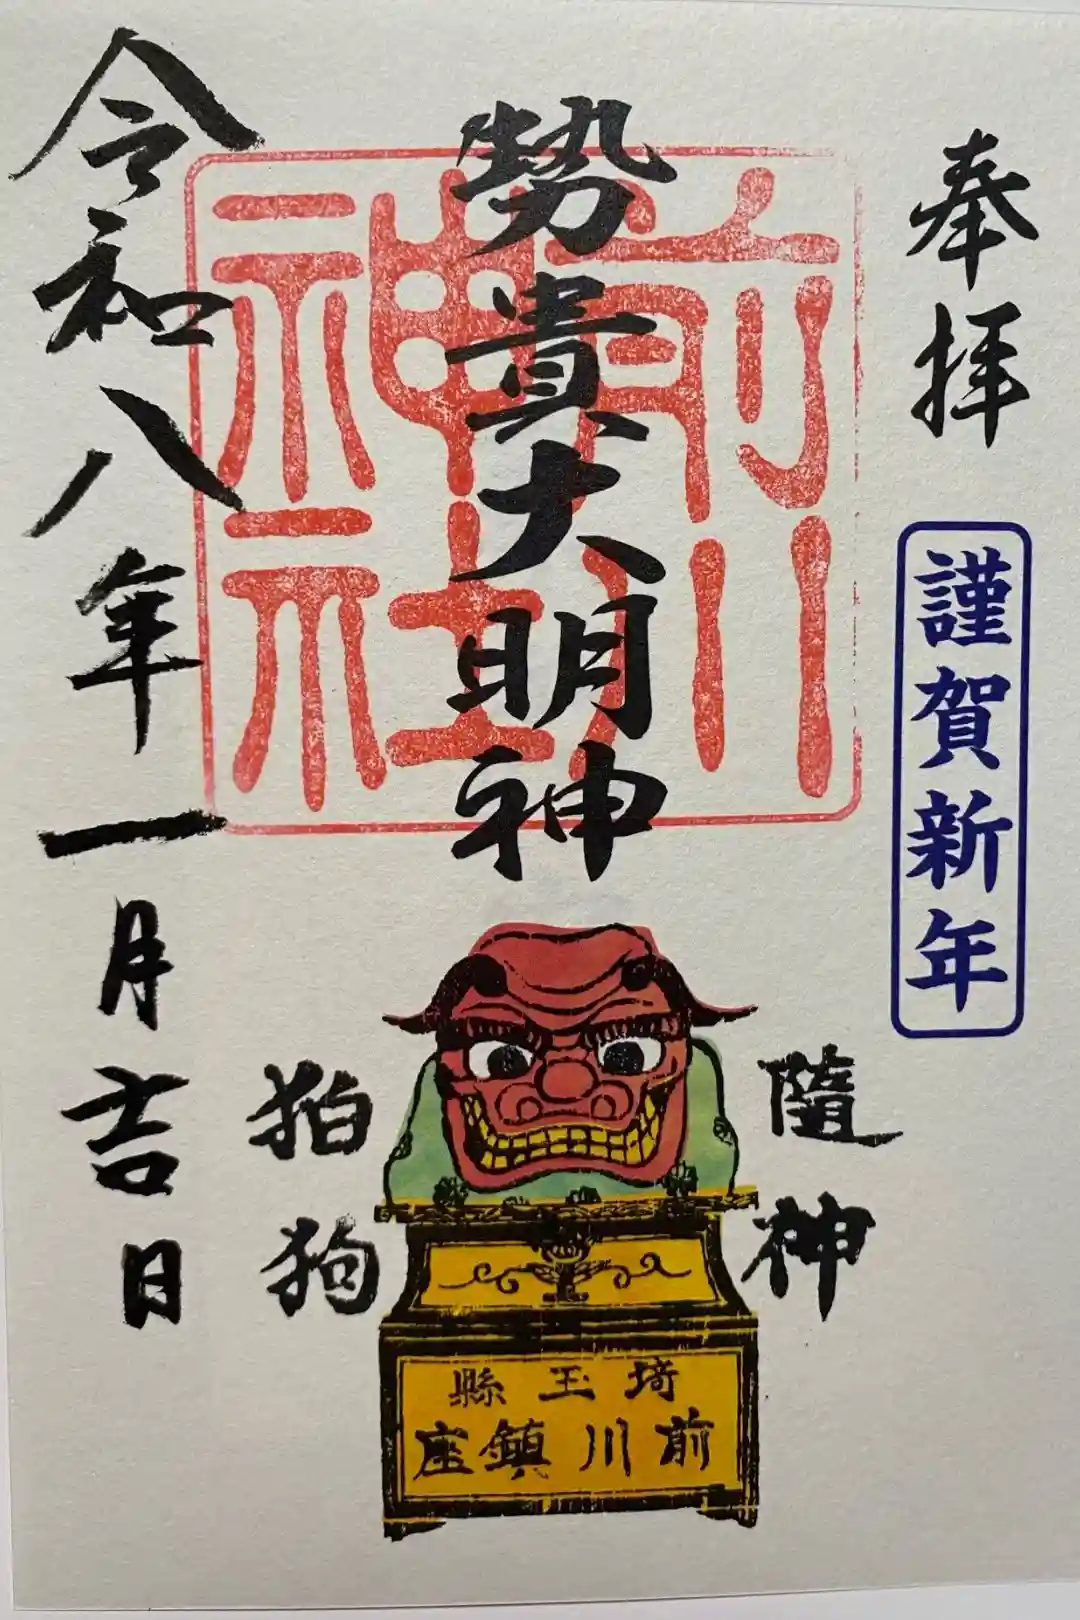 奉拝
謹賀新年
勢貴大明神
前川
神社
令和八年一月吉日
隨神
狛狗
埼玉縣
前川鎮座